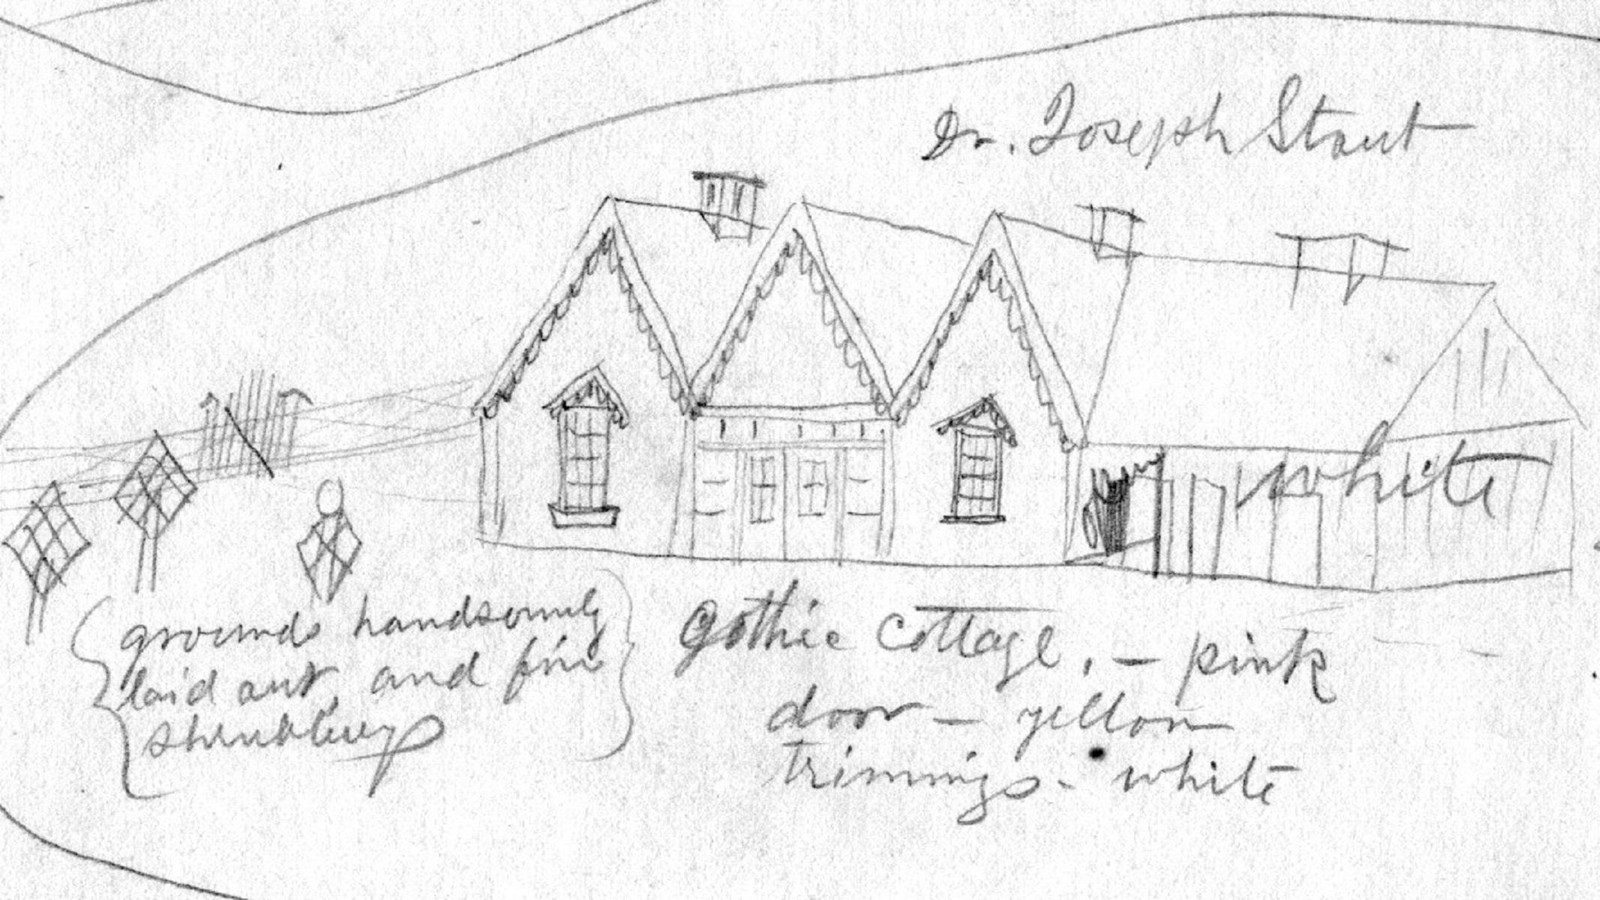 Dr. Joseph Stout
white
grounds handsomely
laid out, and fine
shrubbery
Gothic Cottage, – pink
door – yellow
trimmings – white